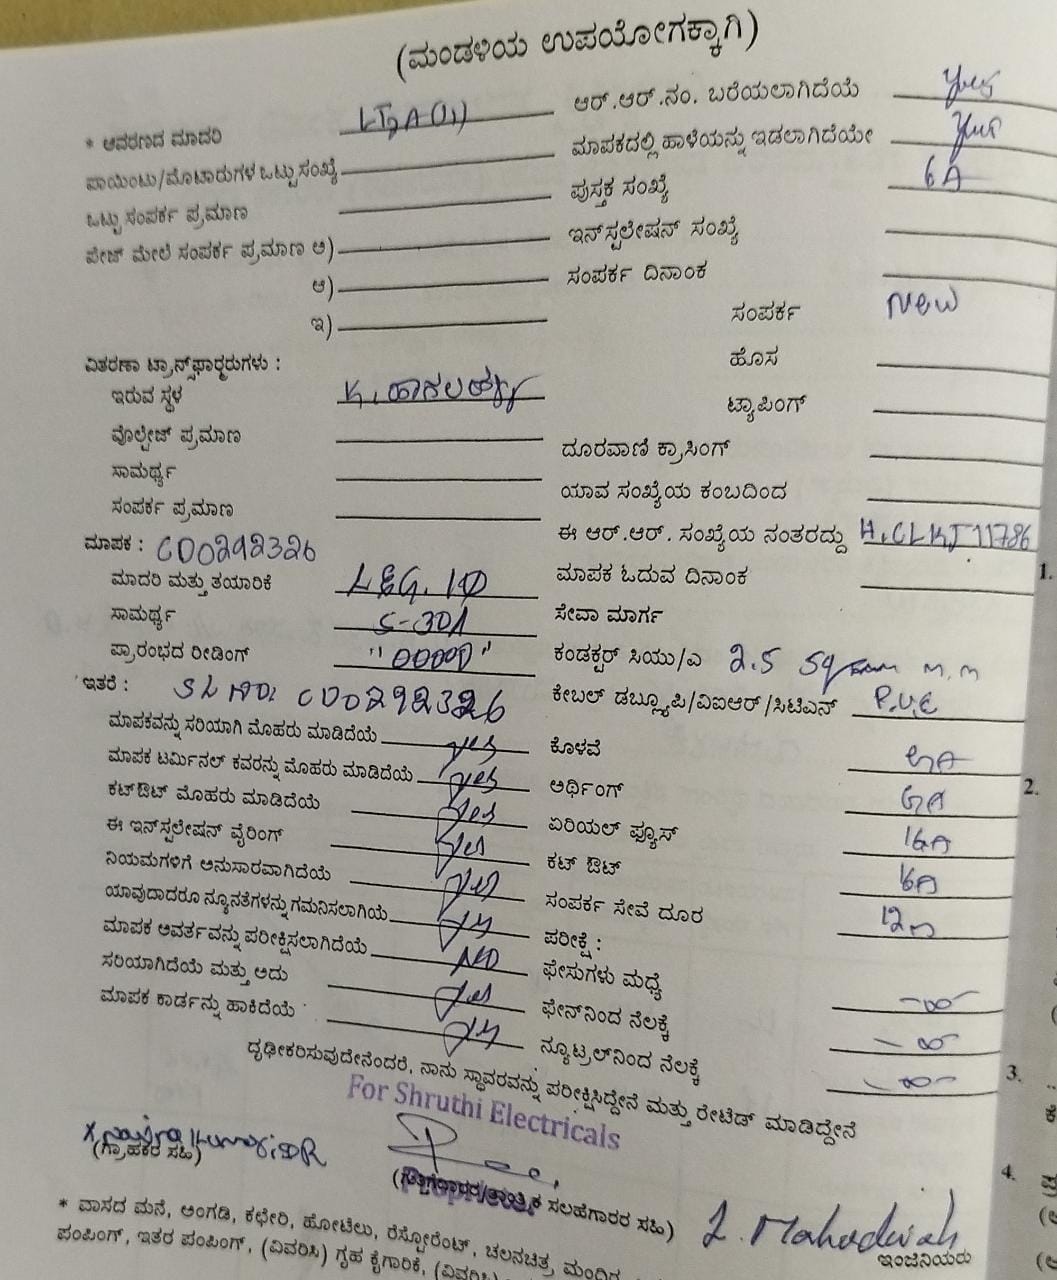 (ಮಂಡಳಿಯ ಉಪಯೋಗಕ್ಕಾಗಿ)
* ಆವರಣದ ಮಾದರಿ
ಪಾಯಿಂಟು/ಮೊಟಾರುಗಳ ಒಟ್ಟು ಸಂಖ್ಯೆ
ಒಟ್ಟು ಸಂಪರ್ಕ ಪ್ರಮಾಣ
ಪೇಜ್ ಮೇಲೆ ಸಂಪರ್ಕ ಪ್ರಮಾಣ ಅ)
ಆ)
ಇ)
ವಿತರಣಾ ಟ್ರಾನ್ಸ್‌ಫಾರ್ಮರುಗಳು :
ಇರುವ ಸ್ಥಳ
ವೊಲ್ಟೇಜ್ ಪ್ರಮಾಣ
ಸಾಮರ್ಥ್ಯ
ಸಂಪರ್ಕ ಪ್ರಮಾಣ
ಮಾಪಕ : CD0292326
ಮಾದರಿ ಮತ್ತು ತಯಾರಿಕೆ L&G. 1Φ
ಸಾಮರ್ಥ್ಯ 5-30A
ಪ್ರಾರಂಭದ ರೀಡಿಂಗ್ "00000"
ಇತರೆ : SL NO: CD0292326
ಮಾಪಕವನ್ನು ಸರಿಯಾಗಿ ಮೊಹರು ಮಾಡಿದೆಯೆ yes
ಮಾಪಕ ಟರ್ಮಿನಲ್ ಕವರನ್ನು ಮೊಹರು ಮಾಡಿದೆಯೆ yes
ಕಟ್‌ಔಟ್ ಮೊಹರು ಮಾಡಿದೆಯೆ yes
ಈ ಇನ್‌ಸ್ಟಲೇಷನ್ ವೈರಿಂಗ್ yes
ನಿಯಮಗಳಿಗೆ ಅನುಸಾರವಾಗಿದೆಯೆ yes
ಯಾವುದಾದರೂ ನ್ಯೂನತೆಗಳನ್ನು ಗಮನಿಸಲಾಗಿಯೆ
ಮಾಪಕ ಆವರ್ತವನ್ನು ಪರೀಕ್ಷಿಸಲಾಗಿದೆಯೆ NO
ಸರಿಯಾಗಿದೆಯೆ ಮತ್ತು ಅದು yes
ಮಾಪಕ ಕಾರ್ಡನ್ನು ಹಾಕಿದೆಯೆ
ಆರ್.ಆರ್.ನಂ. ಬರೆಯಲಾಗಿದೆಯೆ yes
ಮಾಪಕದಲ್ಲಿ ಹಾಳೆಯನ್ನು ಇಡಲಾಗಿದೆಯೇ yes
ಪುಸ್ತಕ ಸಂಖ್ಯೆ 6A
ಇನ್‌ಸ್ಟಲೇಷನ್ ಸಂಖ್ಯೆ
ಸಂಪರ್ಕ ದಿನಾಂಕ
ಸಂಪರ್ಕ New
ಹೊಸ
ಟ್ಯಾಪಿಂಗ್
ದೂರವಾಣಿ ಕ್ರಾಸಿಂಗ್
ಯಾವ ಸಂಖ್ಯೆಯ ಕಂಬದಿಂದ
ಈ ಆರ್.ಆರ್. ಸಂಖ್ಯೆಯ ನಂತರದ್ದು H.CLKJ 11786
ಮಾಪಕ ಓದುವ ದಿನಾಂಕ
ಸೇವಾ ಮಾರ್ಗ
ಕಂಡಕ್ಟರ್ ಸಿಯು/ಎ 2.5 Sq m.m
ಕೇಬಲ್ ಡಬ್ಲ್ಯೂಪಿ/ವಿಐಆರ್/ಸಿಟಿಎಸ್ P.V.C
ಕೊಳವೆ
ಅರ್ಥಿಂಗ್
ಏರಿಯಲ್ ಫ್ಯೂಸ್ 16A
ಕಟ್ ಔಟ್ 16A
ಸಂಪರ್ಕ ಸೇವೆ ದೂರ 12m
ಪರೀಕ್ಷೆ :
ಫೇಸುಗಳು ಮಧ್ಯೆ
ಫೇಸ್‌ನಿಂದ ನೆಲಕ್ಕೆ - ∞ -
ನ್ಯೂಟ್ರಲ್‌ನಿಂದ ನೆಲಕ್ಕೆ - ∞ -
ದೃಢೀಕರಿಸುವುದೇನೆಂದರೆ, ನಾನು ಸ್ಥಾವರವನ್ನು ಪರೀಕ್ಷಿಸಿದ್ದೇನೆ ಮತ್ತು ರೇಟೆಡ್ ಮಾಡಿದ್ದೇನೆ
For Shruthi Electricals
(ಗ್ರಾಹಕರ ಸಹಿ)
ಸಲಹೆಗಾರರ ಸಹಿ)
ಇಂಜಿನಿಯರು
* ವಾಸದ ಮನೆ, ಅಂಗಡಿ, ಕಛೇರಿ, ಹೋಟೆಲು, ರೆಸ್ಟೋರೆಂಟ್, ಚಲನಚಿತ್ರ ಮಂದಿರ
ಪಂಪಿಂಗ್, ಇತರ ಪಂಪಿಂಗ್, (ವಿವರಿಸಿ) ಗೃಹ ಕೈಗಾರಿಕೆ,
1.
2.
3.
4.